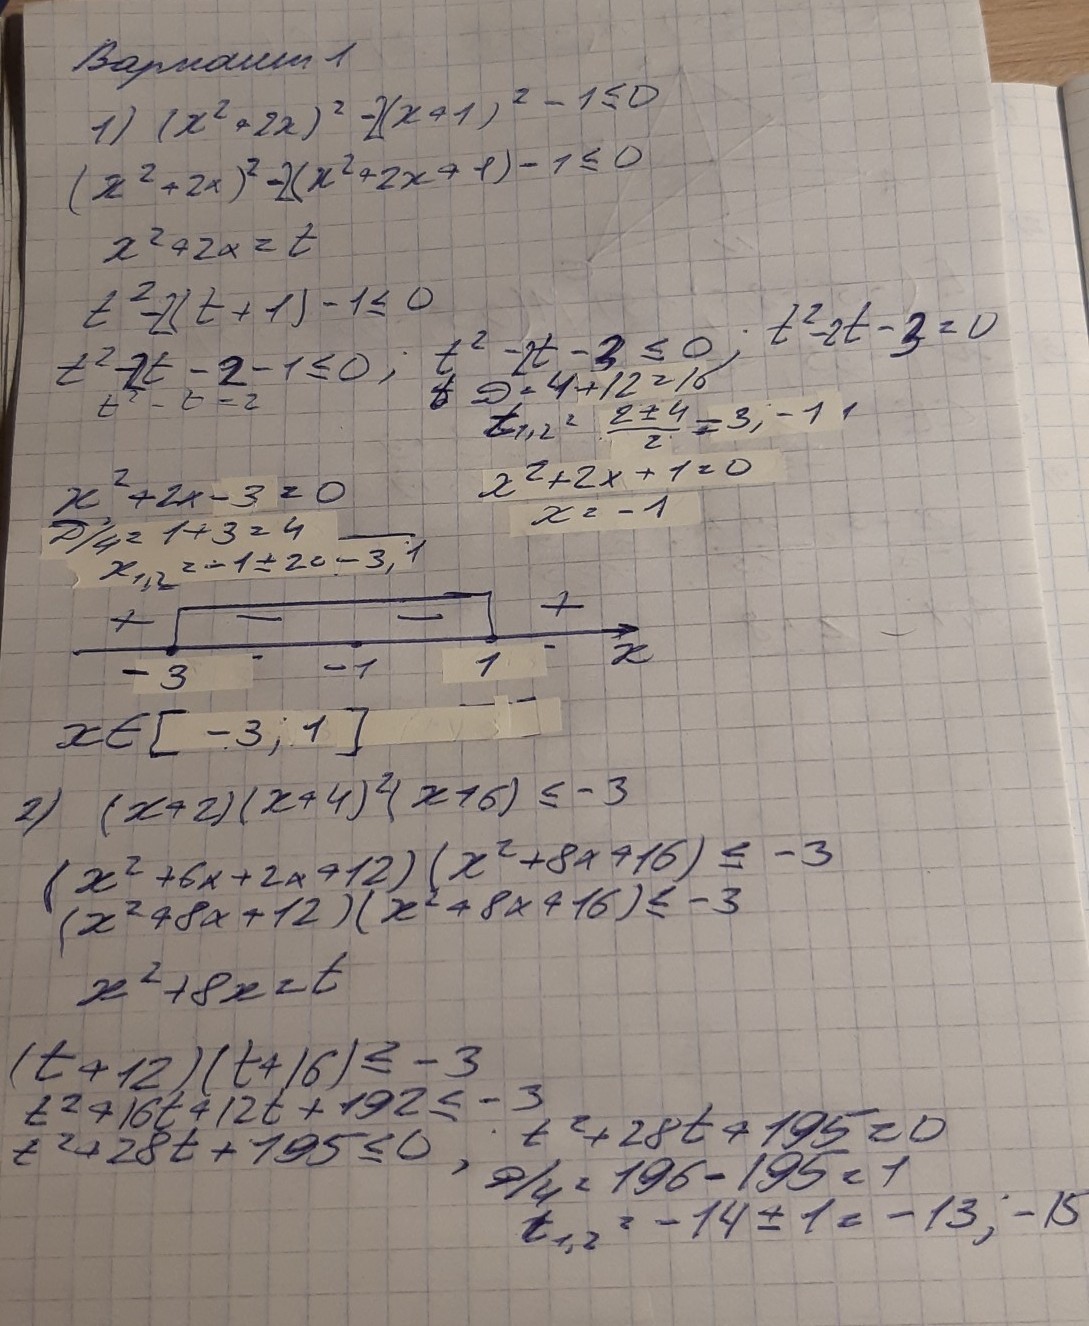 Вариант 1
1) (x²+2x)² -2(x+1)² - 1≤0
(x²+2x)² -2(x²+2x+1) - 1≤0
x²+2x=t
t²-2(t+1)-1≤0
t²-2t-2-1≤0; t²-2t-3≤0; t²-2t-3=0
t²-t=2
D=4+12=16
t1,2= (2±4)/2=3; -1
x²+2x-3=0
x²+2x+1=0
D/4=1+3=4
x=-1
x1,2=-1±2=-3; 1
+ — — +
-3 -1 1 x
x∈[-3; 1]
2) (x+2)(x+4)²(x+6)≤-3
(x²+6x+2x+12)(x²+8x+16)≤-3
(x²+8x+12)(x²+8x+16)≤-3
x²+8x=t
(t+12)(t+16)≤-3
t²+16t+12t+192≤-3
t²+28t+195≤0; t²+28t+195=0
D/4=196-195=1
t1,2=-14±1=-13; -15